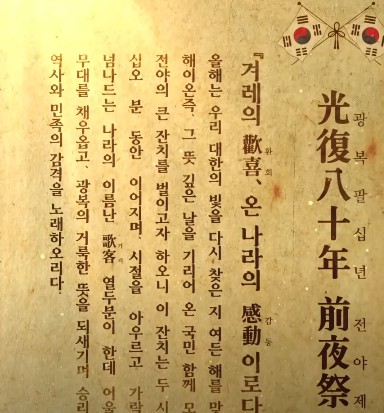 광복팔십년 전야제
光復八十年 前夜祭
환희 감동
『겨레의 歡喜、온 나라의 感動이로다
올해는 우리 대한의 빛을 다시 찾은 지 여든 해를 맞
해이온즉、그 뜻 깊은 날을 기리어 온 국민 함께 모
전야의 큰 잔치를 벌이고자 하오니 이 잔치는 두 시
십오 분 동안 이어지며、시절을 아우르고 가락
가객
넘나드는 나라의 이름난 歌客 열두분이 한데 어울
무대를 채우옵고、광복의 거룩한 뜻을 되새기며 승리
역사와 민족의 감격을 노래하오리다.